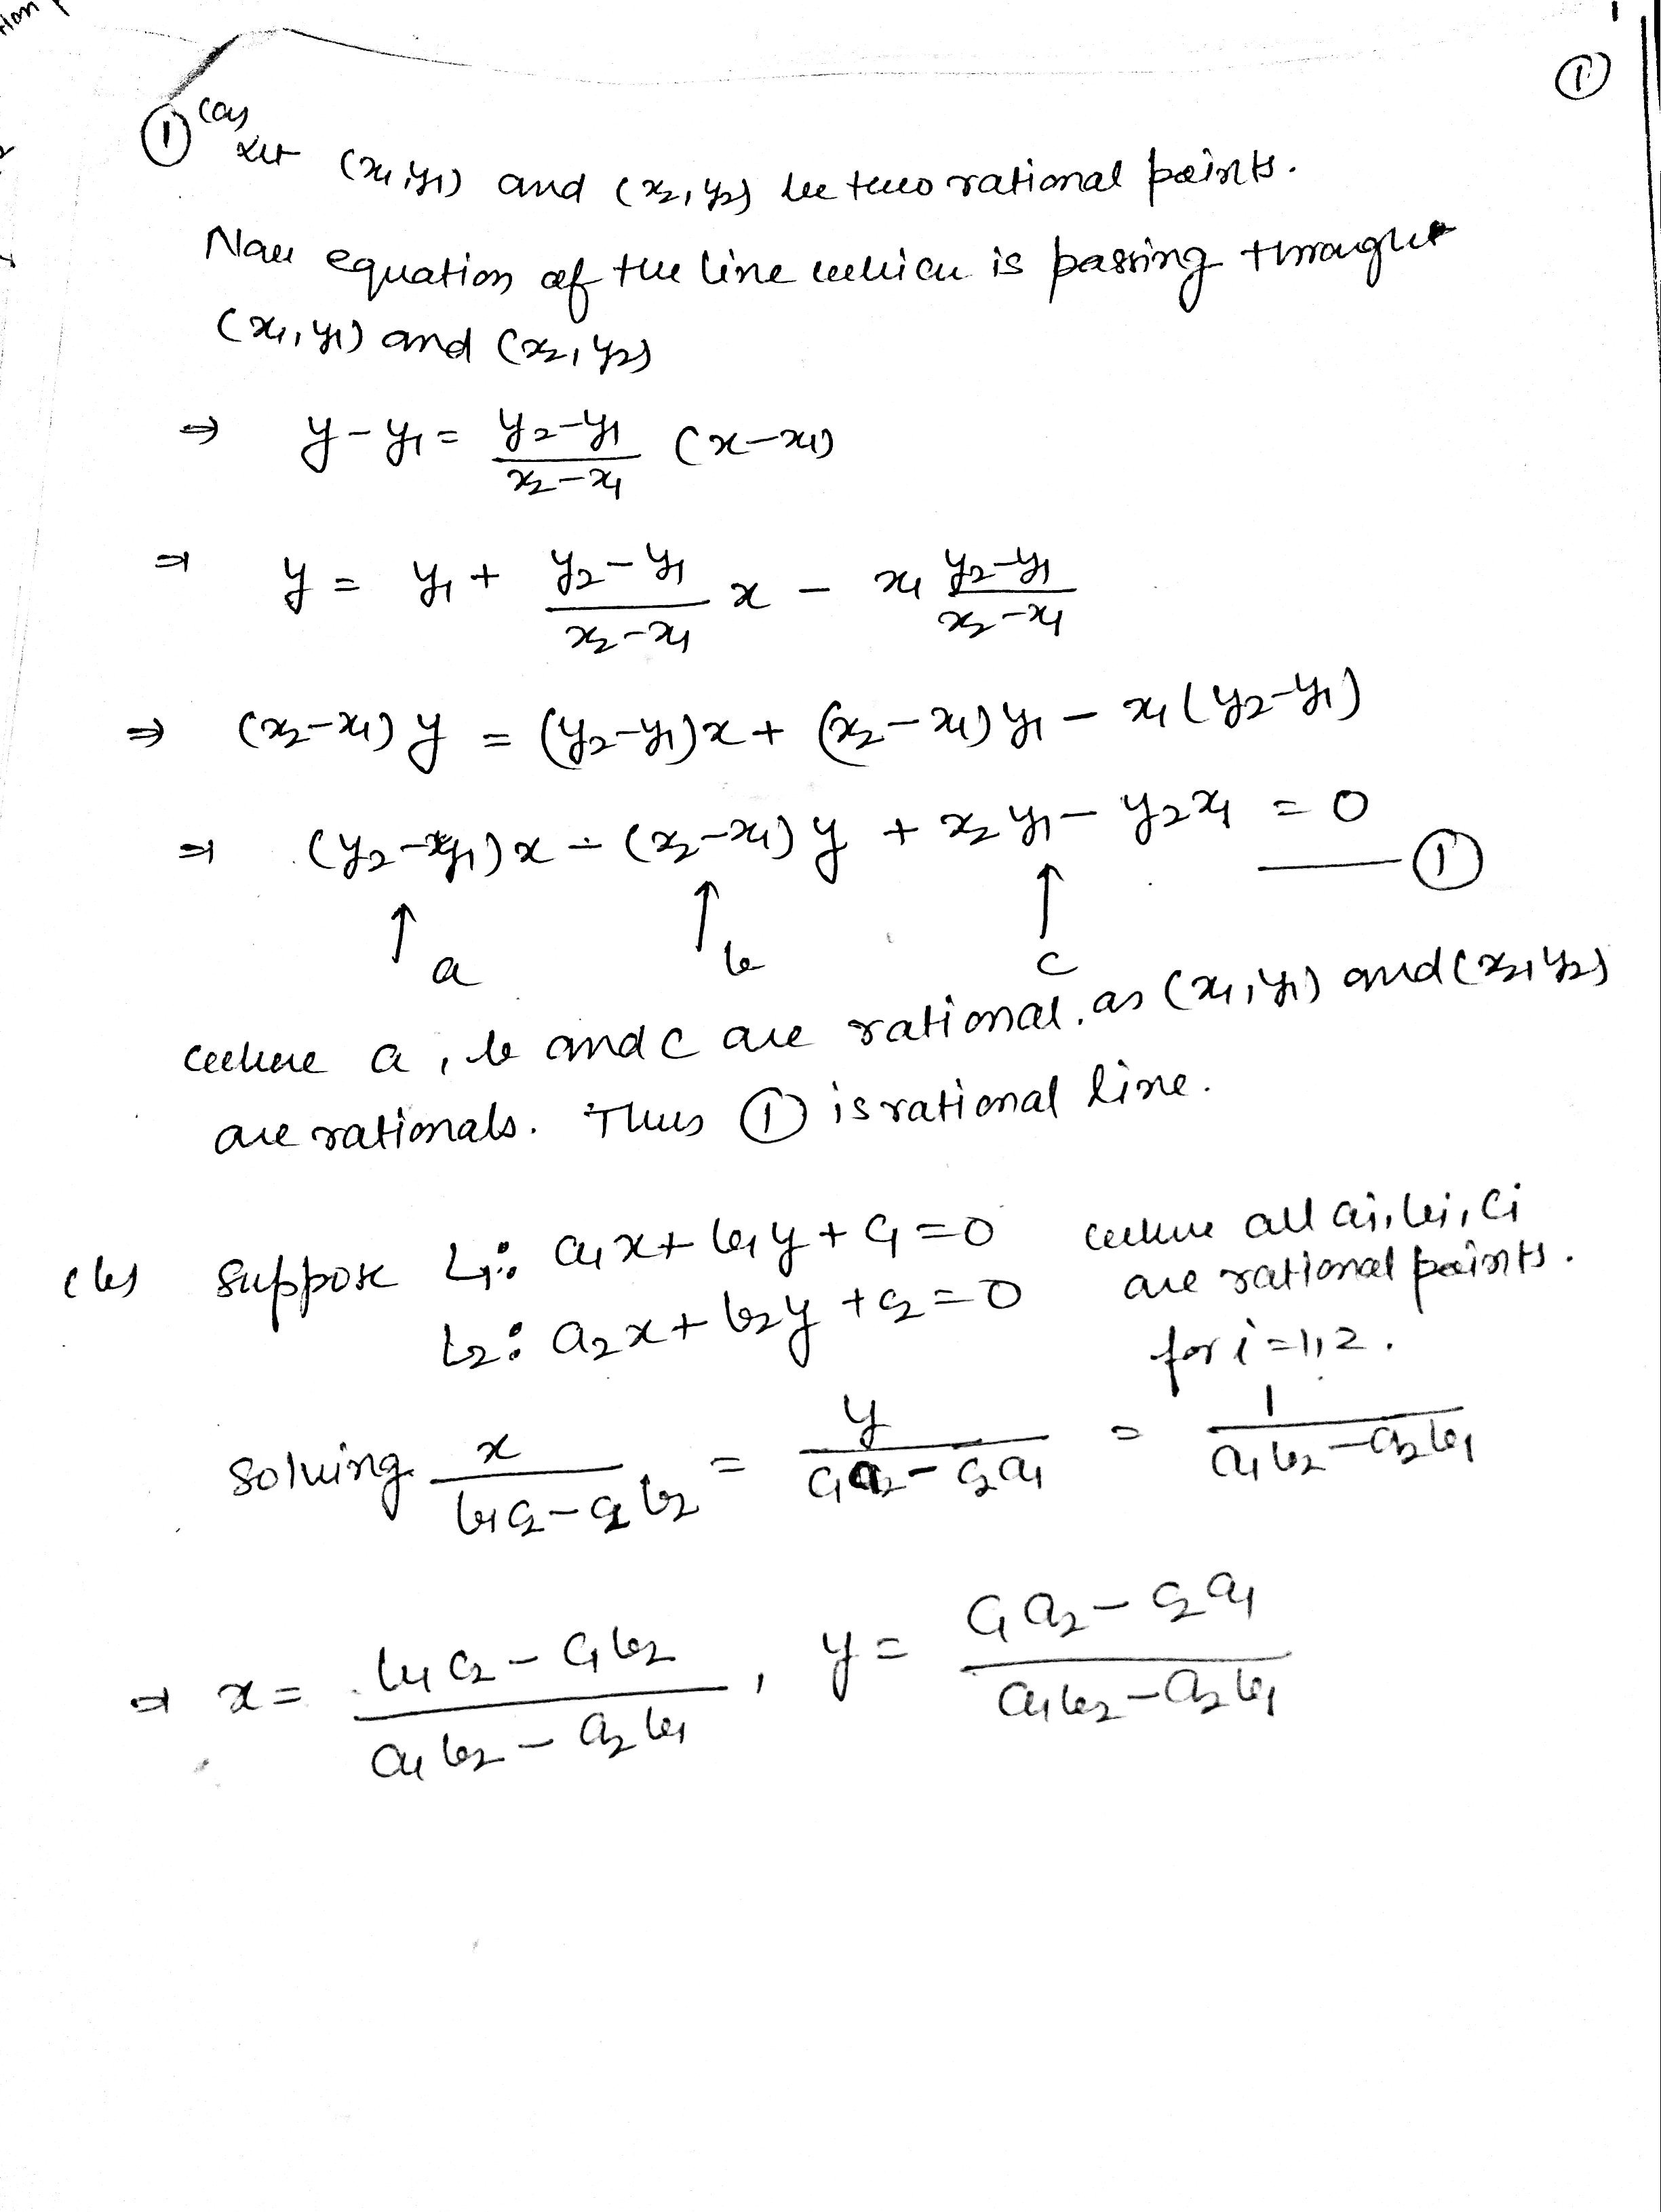 tion
①
① (a)
Let (x₁,y₁) and (x₂,y₂) be two rational points.
Now equation of the line which is passing through
(x₁,y₁) and (x₂,y₂)
⇒ y-y₁ = (y₂-y₁)/(x₂-x₁) (x-x₁)
⇒ y = y₁ + (y₂-y₁)/(x₂-x₁) x - x₁ (y₂-y₁)/(x₂-x₁)
⇒ (x₂-x₁) y = (y₂-y₁)x + (x₂-x₁) y₁ - x₁(y₂-y₁)
⇒ (y₂-y₁)x - (x₂-x₁) y + x₂y₁ - y₂x₁ = 0 —— ①
↑ a ↑ b ↑ c
where a, b and c are rational. as (x₁,y₁) and (x₂,y₂)
are rationals. Thus ① is rational line.
(b) Suppose L₁: a₁x + b₁y + c₁ = 0 where all ai, bi, ci
L₂: a₂x + b₂y + c₂ = 0 are rational points.
for i=1,2.
Solving x/(b₁c₂-c₁b₂) = y/(c₁a₂-c₂a₁) = 1/(a₁b₂-a₂b₁)
⇒ x = (b₁c₂-c₁b₂)/(a₁b₂-a₂b₁), y = (c₁a₂-c₂a₁)/(a₁b₂-a₂b₁)